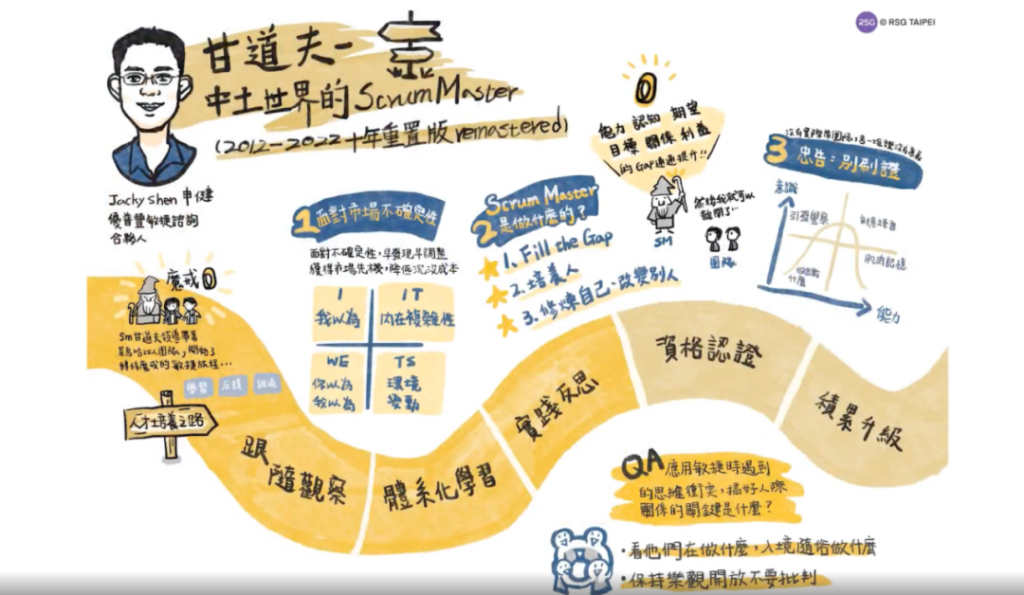 RSG © RSG TAIPEI
甘道夫—
中土世界的 Scrum Master
(2012-2022十年重置版 remastered)
Jacky Shen 申健
優普豐敏捷諮詢
合夥人
魔戒
Sm甘道夫領導帶著
哈比人團隊,開始了
敏捷旅程...
學習
人才培養之路
1 面對市場不確定性
面對不確定性,早發現早調整
獲得市場先機,降低沉沒成本
I
我以為
IT
內在複雜性
WE
你以為
我以為
TS
環境
變動
Scrum Master
2 是做什麼的?
1. Fill the Gap
2. 培養人
3. 修煉自己、改變別人
能力 認知 期望
目標 關係 利益
的 Gap 通通提升!!
SM
然後我就可以
離開了...
團隊
3 忠告:別刷證
意識
引發覺察
肌肉記憶
能力
跟
隨觀察
體系化學習
實踐反思
資格認證
積累升級
QA 應用敏捷時遇到
的思維衝突,搞好人際
關係的關鍵是什麼?
•看他們在做什麼,入境隨俗做什麼
•保持樂觀開放不要批判